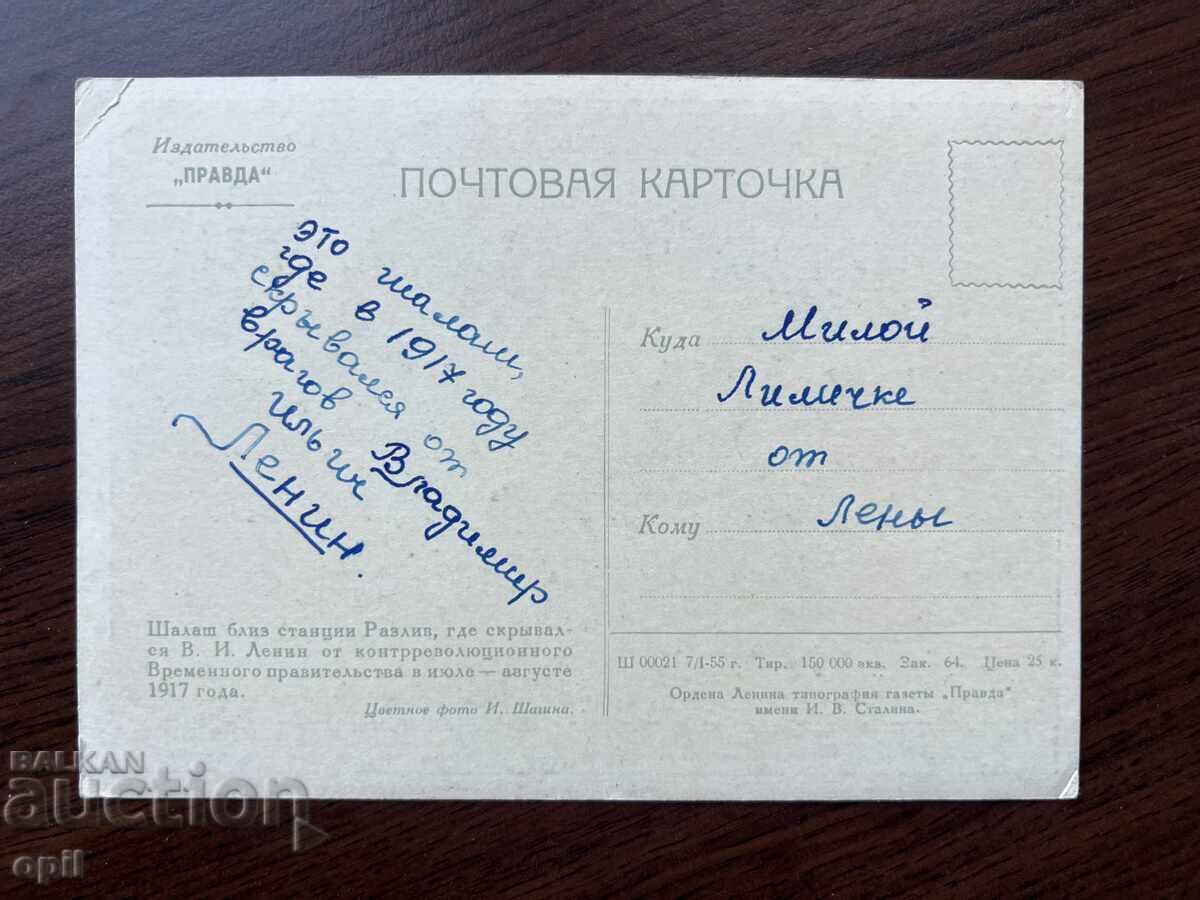 Издательство
„ПРАВДА“
ПОЧТОВАЯ КАРТОЧКА
это шалаш,
где в 1917 году
скрывался от
врагов Владимир
Ильич
Ленин.
Куда Милой
Лимичке
от
Кому Лены
Шалаш близ станции Разлив, где скрывал-
ся В. И. Ленин от контрреволюционного
Временного правительства в июле — августе
1917 года.
Цветное фото И. Шагина.
Ш 00021 7/I-55 г. Тир. 150 000 экз. Зак. 64. Цена 25 к.
Ордена Ленина типография газеты „Правда“
имени И. В. Сталина.
BALKAN
auction
opil